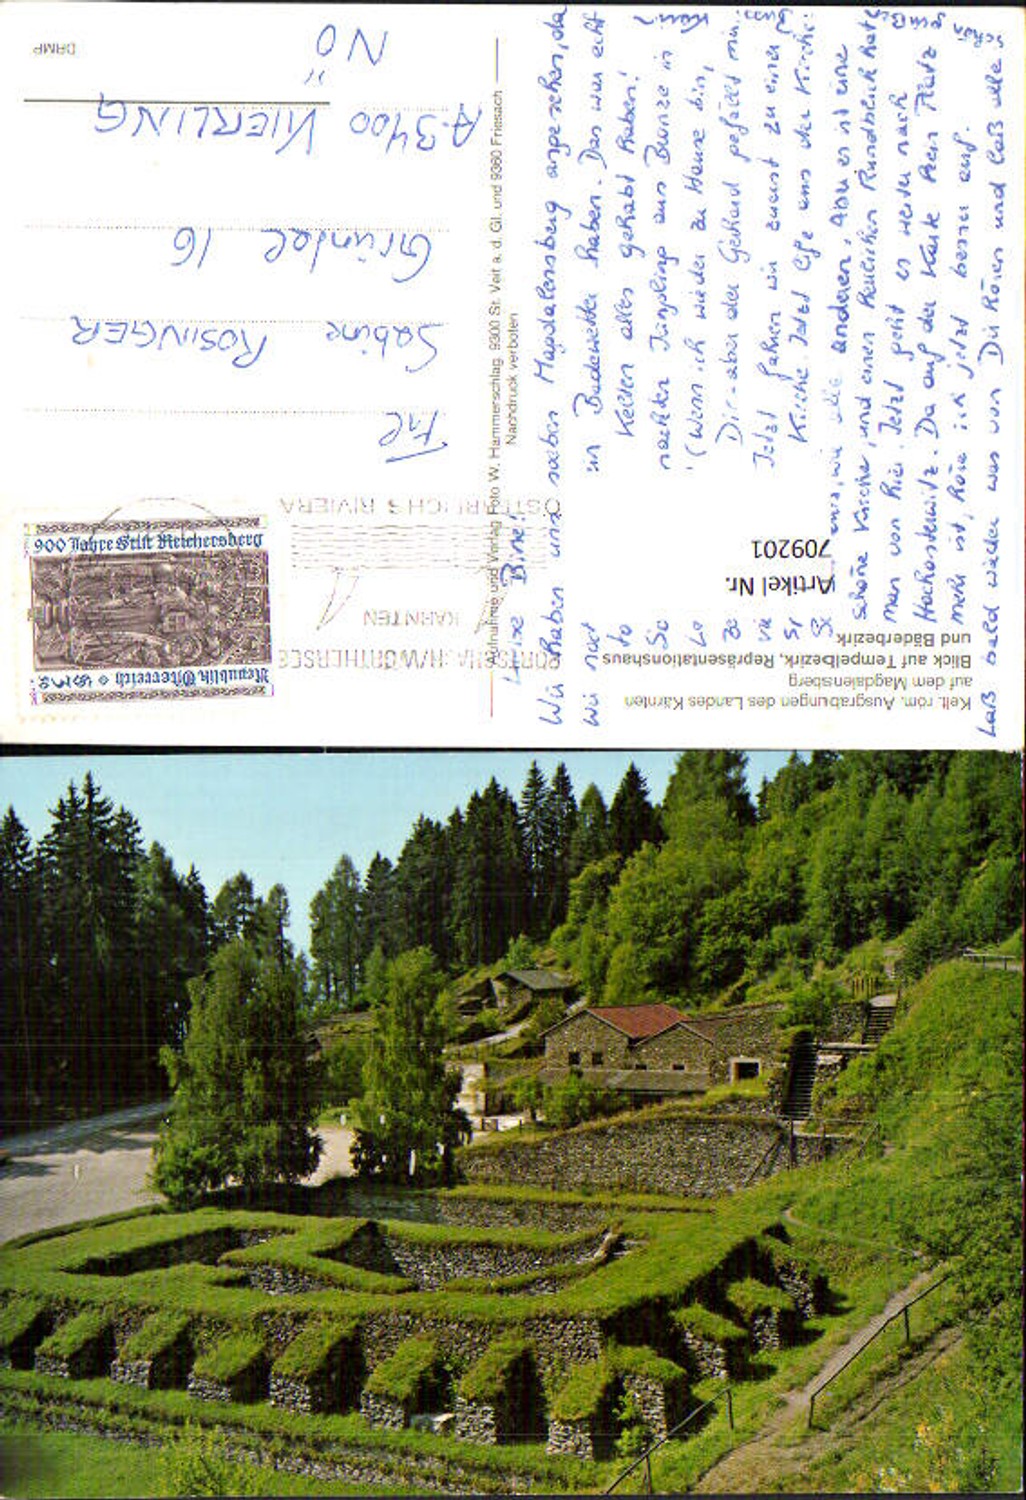 Kelt. röm. Ausgrabungen des Landes Kärnten
auf dem Magdalensberg
Blick auf Tempelbezirk, Repräsentationshaus
und Bäderbezirk
Artikel Nr.
709201
PÖRTSCHACH/WÖRTHERSEE
KÄRNTEN
ÖSTERREICHS RIVIERA
Republik Österreich
900 Jahre Stift Reichersberg
Aufnahme und Verlag Foto W. Hammerschlag, 9300 St. Veit a. d. Gl. und 9360 Friesach
Nachdruck verboten
DRMP
Frl
Sabine ROSINGER
Gründel 16
A-3400 KIERLING
NÖ
Liebe Bine!
Wir haben uns soeben Magdalensberg angesehen, da
wir in Badewetter haben. Das was echt
Kelten alles gehabt haben!
nackten Jüngling aus Bronze in
(Wenn ich wieder zu Hause bin,
Dir - aber der Gerhard gefällt mir
Jetzt fahren wir zuerst zu einer
Kirche. Jetzt aus der Kirche:
wie alle anderen. Aber es ist eine
schöne Kirche, und einen herrlichen Rundblick hat
man von hier. Jetzt geht es weiter nach
Hochosterwitz. Da auf der Karte kein Platz
mehr ist, höre ich jetzt besser auf.
Laß bald wieder was von Dir hören und laß alle